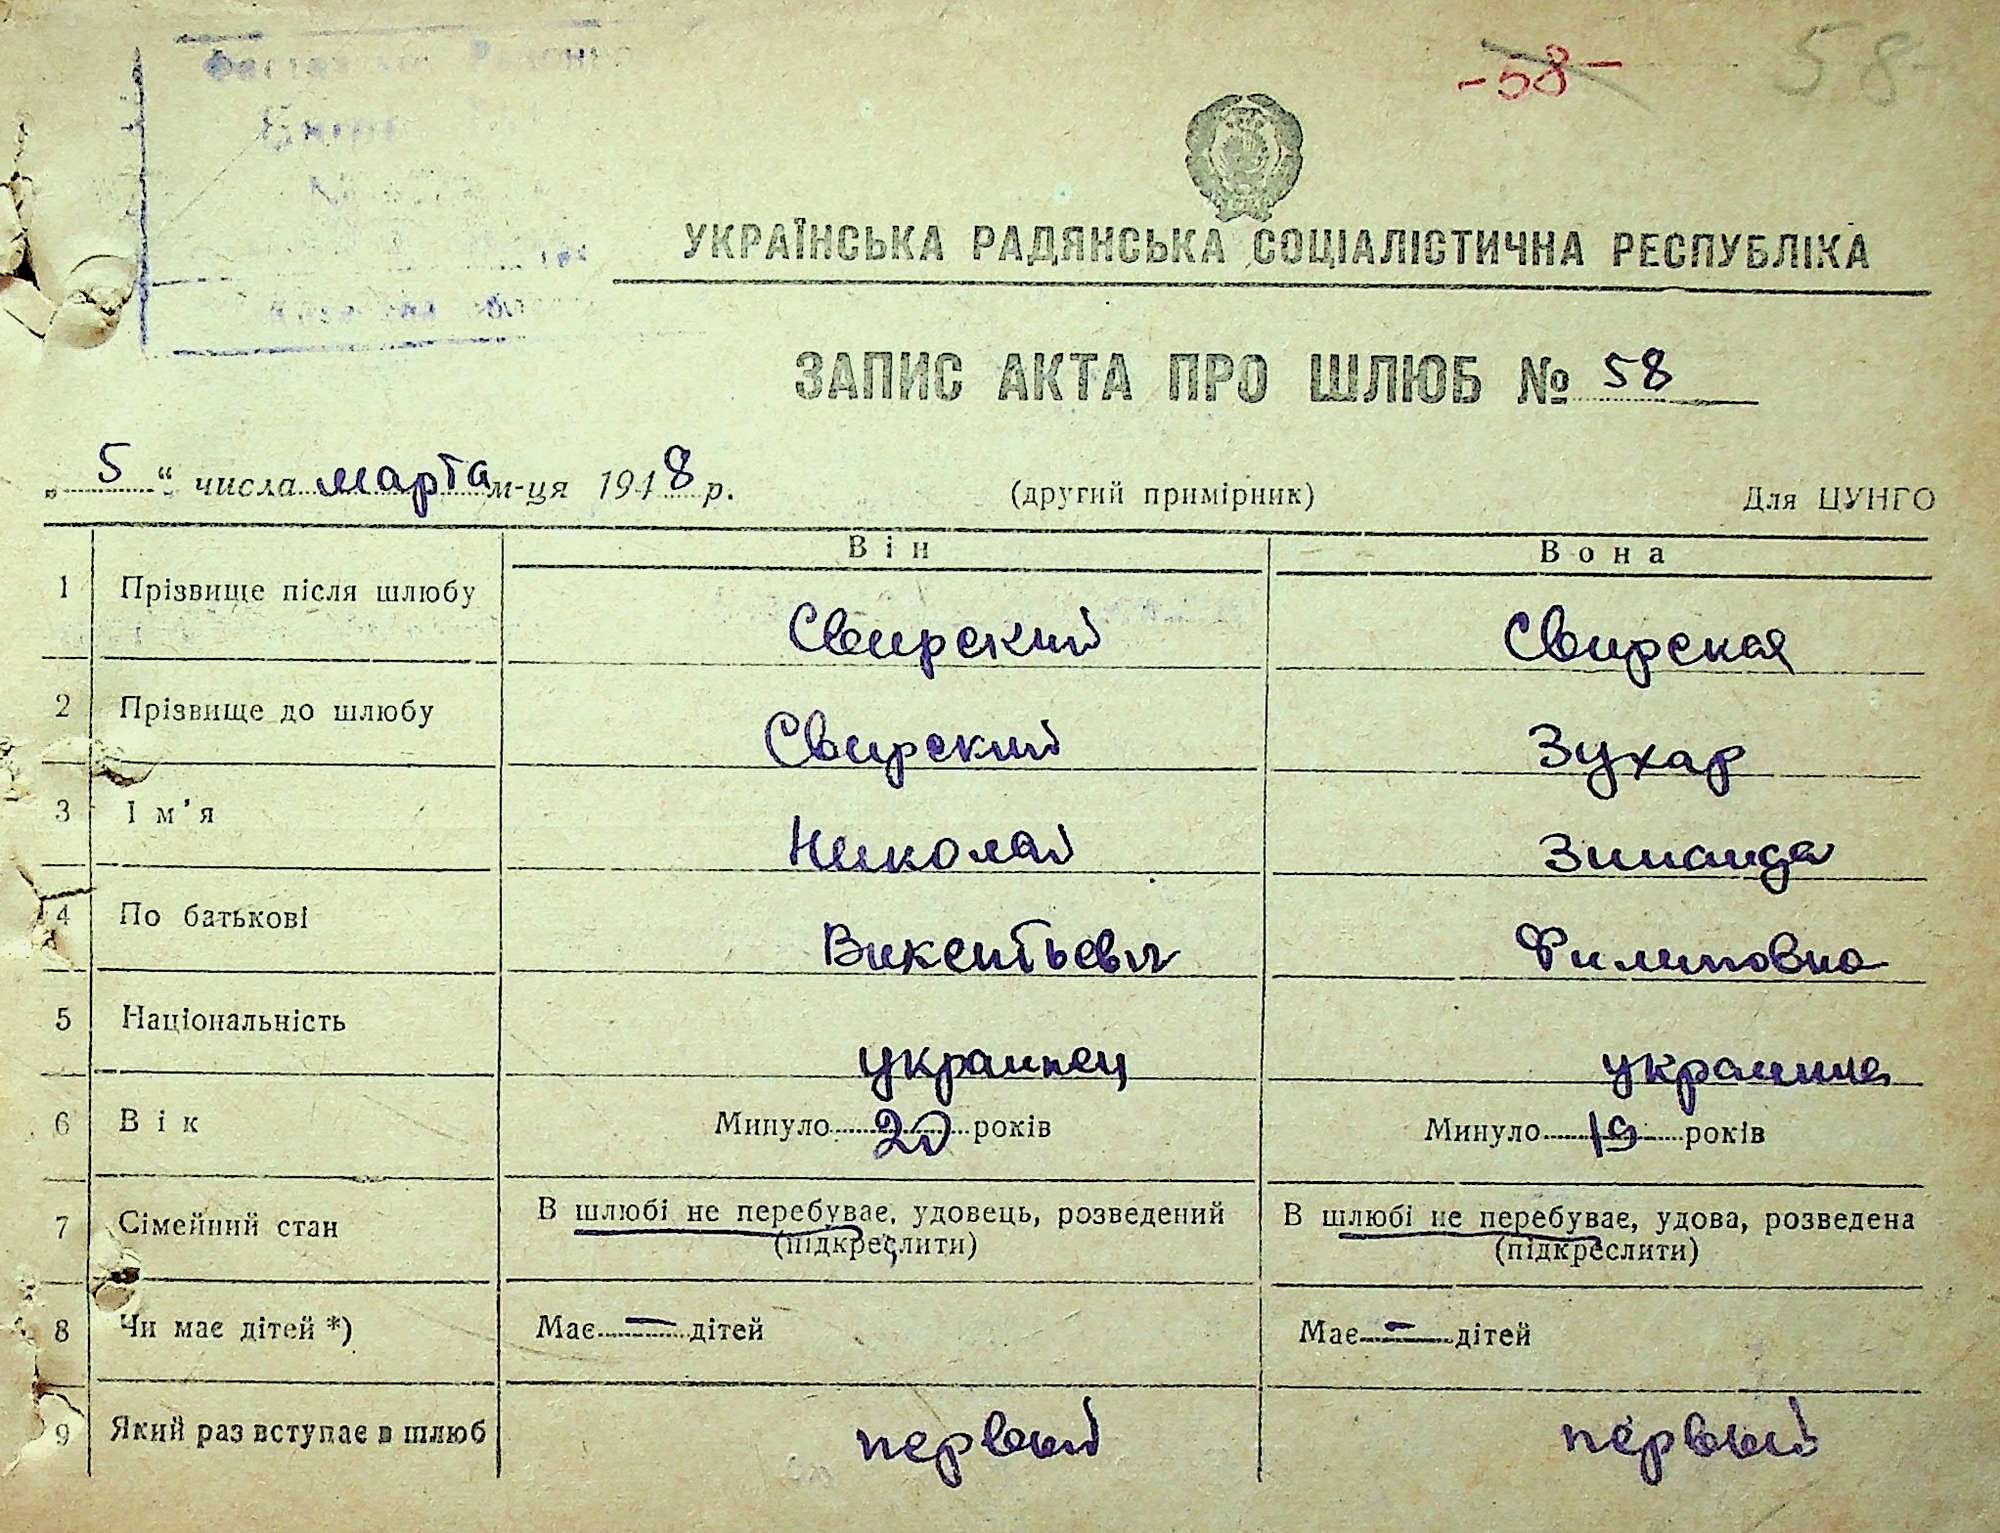 -58- 58-
УКРАЇНСЬКА РАДЯНСЬКА СОЦІАЛІСТИЧНА РЕСПУБЛІКА
ЗАПИС АКТА ПРО ШЛЮБ № 58
„ 5 “ числа марта м-ця 1948 р. (другий примірник) Для ЦУНГО
Він Вона
1 Прізвище після шлюбу Свирский Свирская
2 Прізвище до шлюбу Свирский Зухар
3 Ім'я Николай Зинаида
4 По батькові Викентьевич Филиповна
5 Національність украинец украинка
6 Вік Минуло 20 років Минуло 19 років
7 Сімейний стан В шлюбі не перебуває, удовець, розведений В шлюбі не перебуває, удова, розведена
(підкреслити) (підкреслити)
8 Чи має дітей *) Має — дітей Має — дітей
9 Який раз вступає в шлюб первый первый